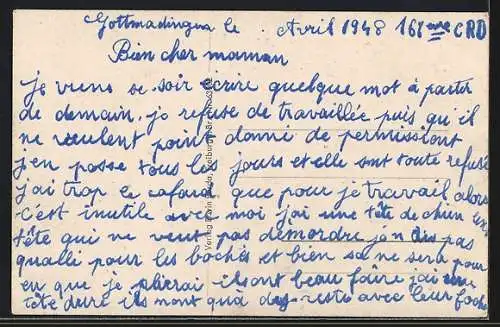 Gottmadingen le Avril 1948 168ème CRD
Bien cher maman
Je viens se soir écrire quelque mot à partir
de demain, je refuse de travaillée puis qu'il
ne veulent point donné de permissiont
j'en posse tous les jours et elle sont toute refusé
j'ai trop le cafard que pour je travail alors
c'est inutile avec moi j'ai une tête de chien
tête qui ne veut pas démordre j'on dis pas
quallé pour les boches et bien sa ne sera pour
en que je plierai ils ont beau faire j'ai une
tête dure ils mont quà des reste avec leur boche